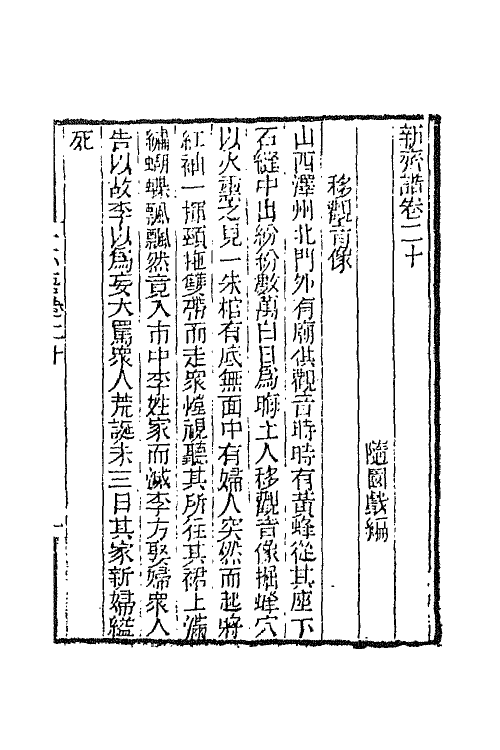 新齊諧卷二十
隨園戲編
移觀音像
山西澤州北門外有廟供觀音時時有黃蜂從其座下
石縫中出紛紛數萬白日為晦土人移觀音像掘蜂穴
以火燻之見一朱棺有底無面中有婦人突然而起將
紅袖一揮頸拖雙帶而走眾惶視聽其所往其裙上滿
繡蝴蝶飄飄然竟入市中李姓家而滅李方娶婦眾人
告以故李以為妄大罵眾人荒誕未三日其家新婦縊
死
卷二十
一